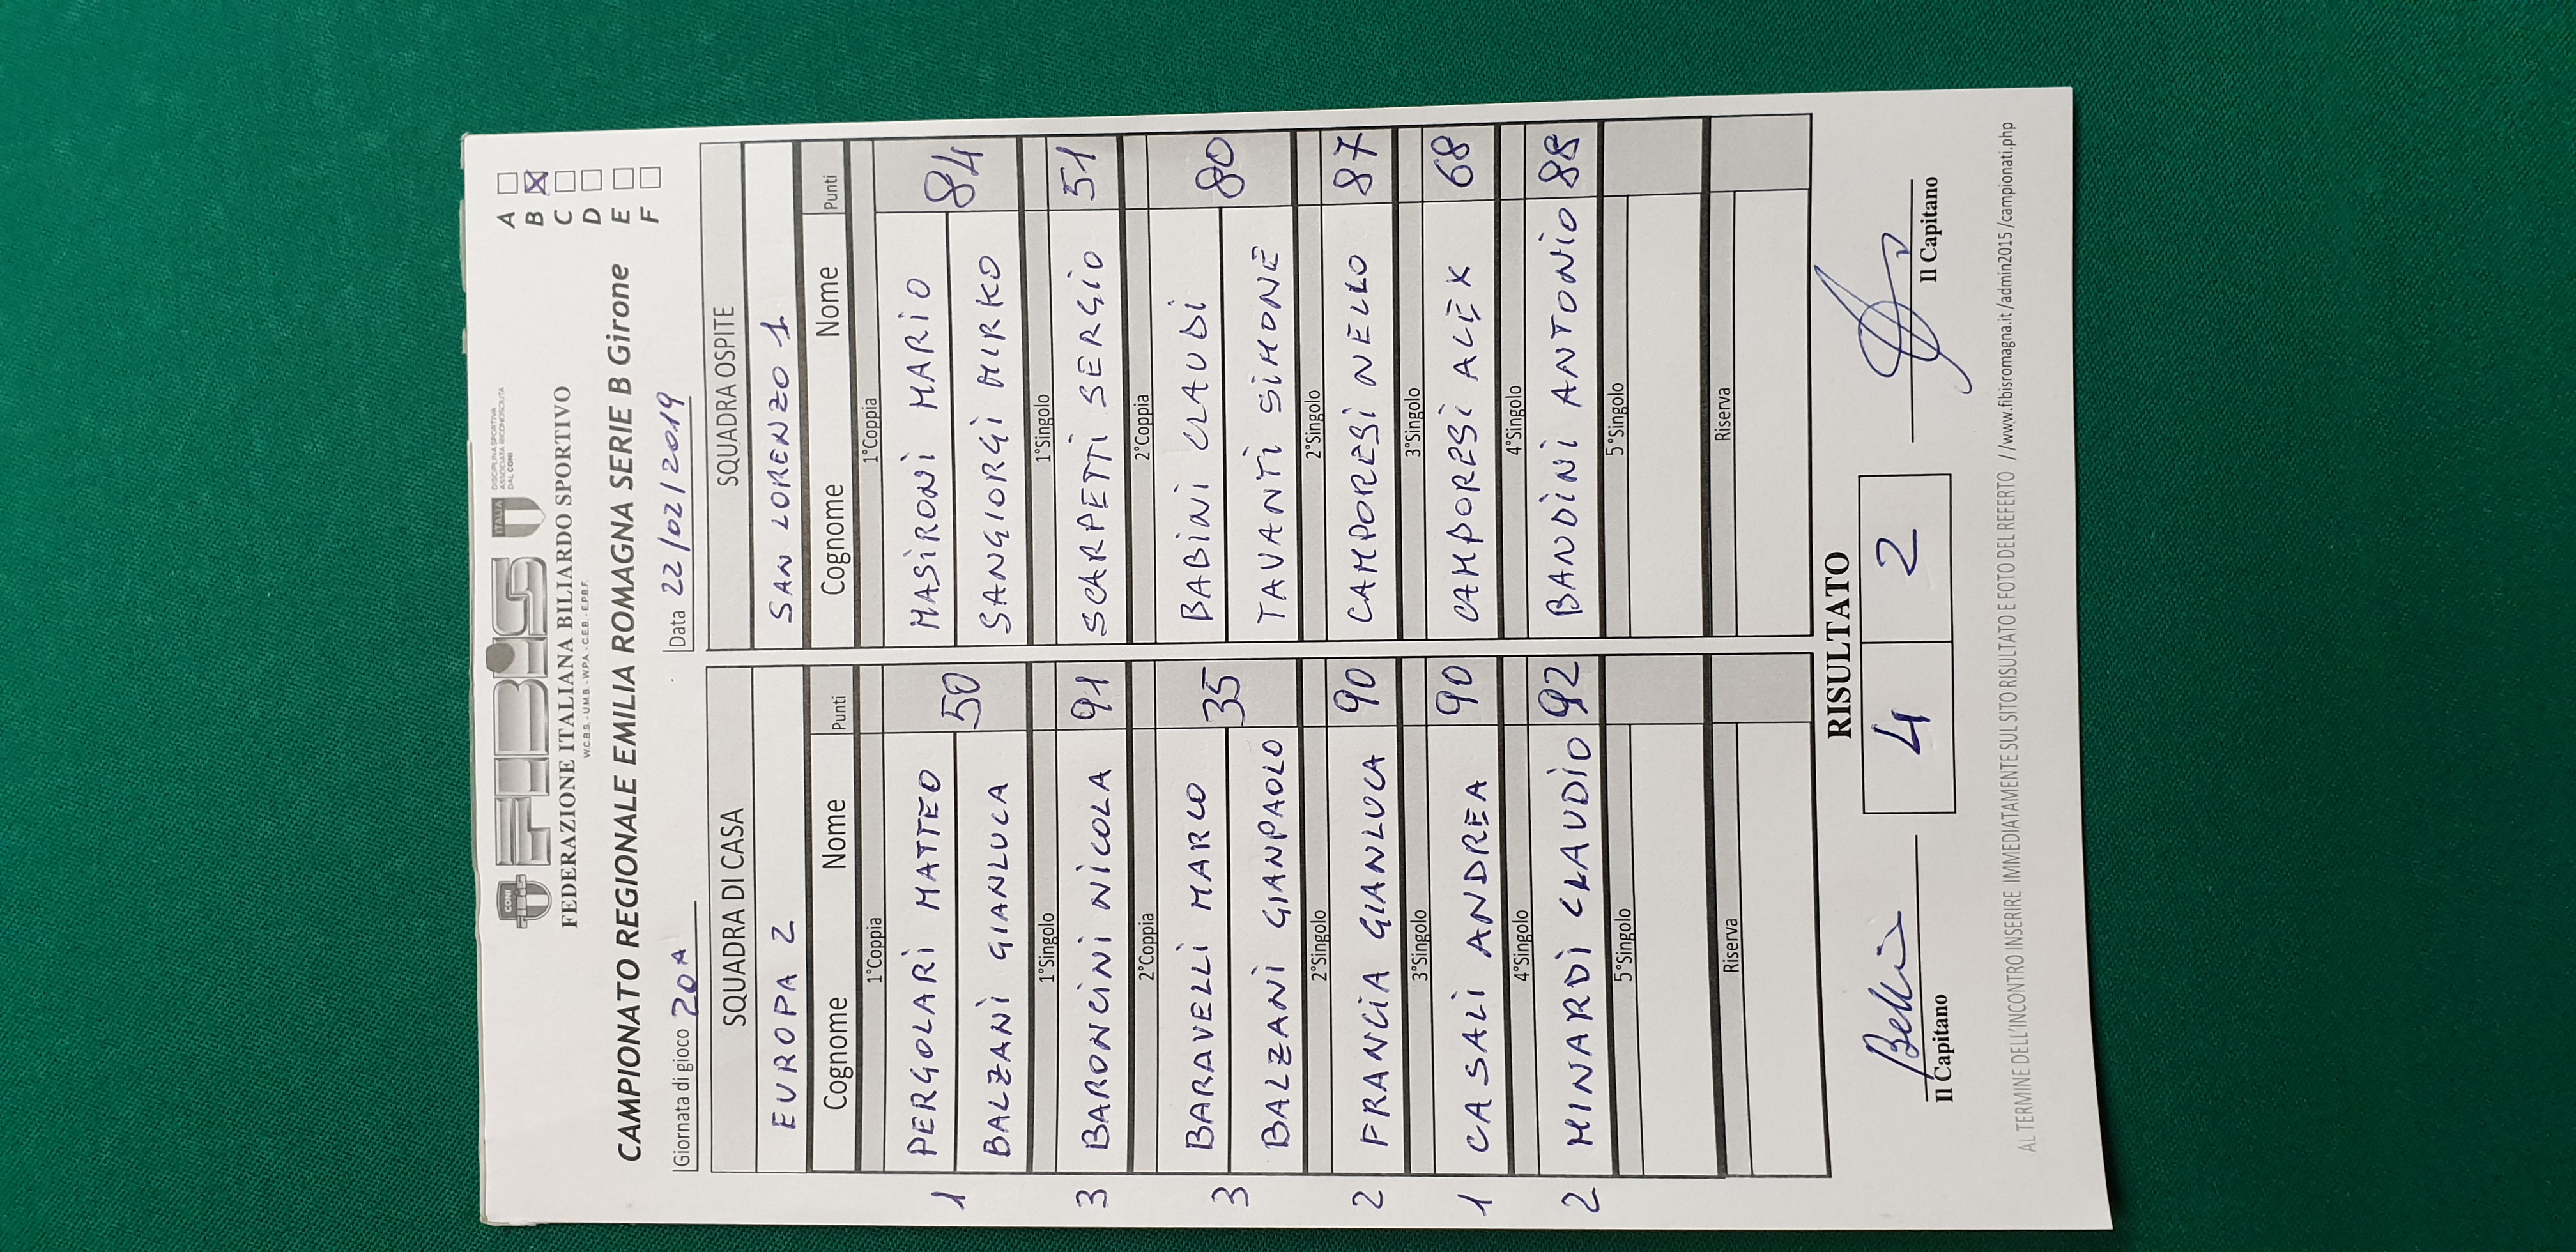 CONI
FIBiS
ITALIA
DISCIPLINA SPORTIVA
ASSOCIATA RICONOSCIUTA
DAL CONI
FEDERAZIONE ITALIANA BILIARDO SPORTIVO
W.C.B.S. - U.M.B. - W.P.A. - C.E.B. - E.P.B.F.
CAMPIONATO REGIONALE EMILIA ROMAGNA SERIE B Girone
A
B X
C
D
E
F
Giornata di gioco 20A Data 22/02/2019
SQUADRA DI CASA SQUADRA OSPITE
EUROPA 2 SAN LORENZO 1
Cognome Nome Punti Cognome Nome Punti
1°Coppia 1°Coppia
PERGOLARI MATTEO MASIRONI MARIO
1 50 84
BALZANI GIANLUCA SANGIORGI MIRKO
1°Singolo 1°Singolo
3 BARONCINI NICOLA 91 SCARPETTI SERGIO 51
2°Coppia 2°Coppia
BARAVELLI MARCO BABINI CLAUDI
3 35 80
BALZANI GIANPAOLO TAVANTI SIMONE
2°Singolo 2°Singolo
2 FRANCIA GIANLUCA 90 CAMPORESI NELLO 87
3°Singolo 3°Singolo
1 CASALI ANDREA 90 CAMPORESI ALEX 68
4°Singolo 4°Singolo
2 MINARDI CLAUDIO 92 BANDINI ANTONIO 88
5°Singolo 5°Singolo
Riserva Riserva
RISULTATO
4 2
Il Capitano Il Capitano
AL TERMINE DELL'INCONTRO INSERIRE IMMEDIATAMENTE SUL SITO RISULTATO E FOTO DEL REFERTO //www.fibisromagna.it/admin2015/campionati.php